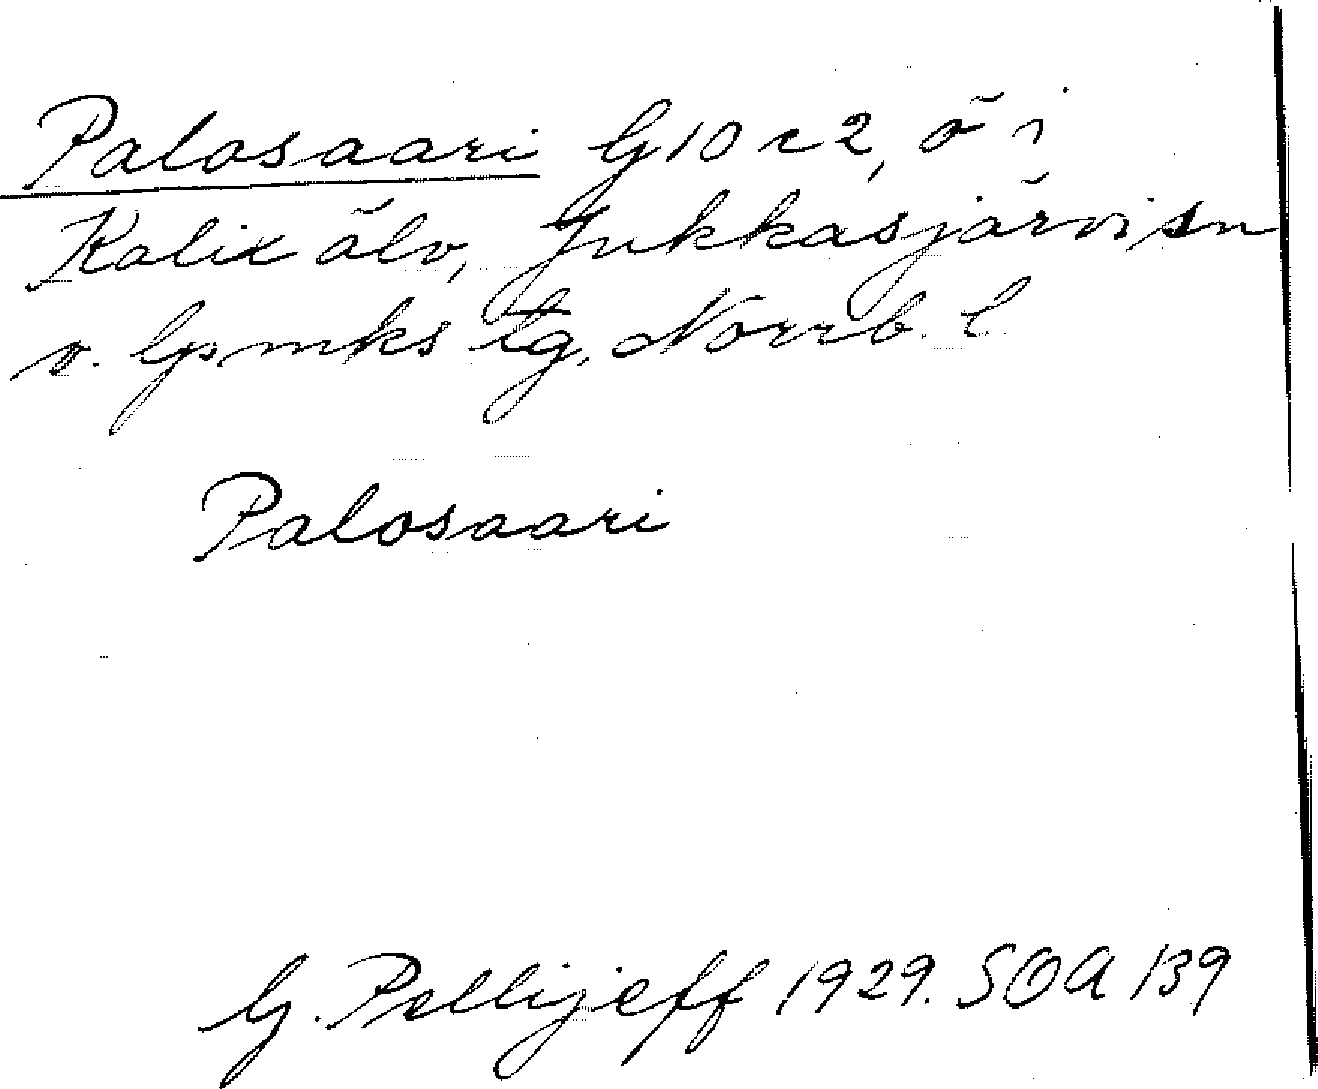 Palosaari G10 c 2, ö i
Kalix älv, Jukkasjärvi sn
v. lpmks tg, Norrb. l.
Palosaari
G. Pellijeff 1929. SOA 139